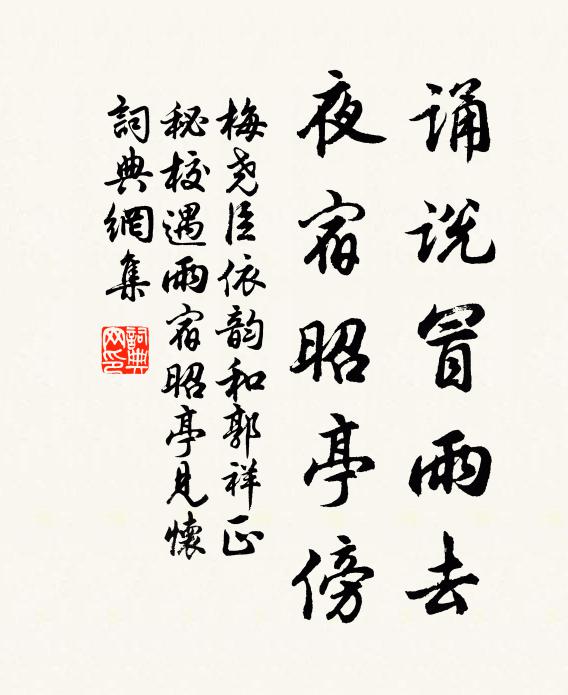 诵说冒雨去
夜宿昭亭傍
梅尧臣依韵和郭祥正
秘校遇雨宿昭亭见懷
詞典網集
詞典网印